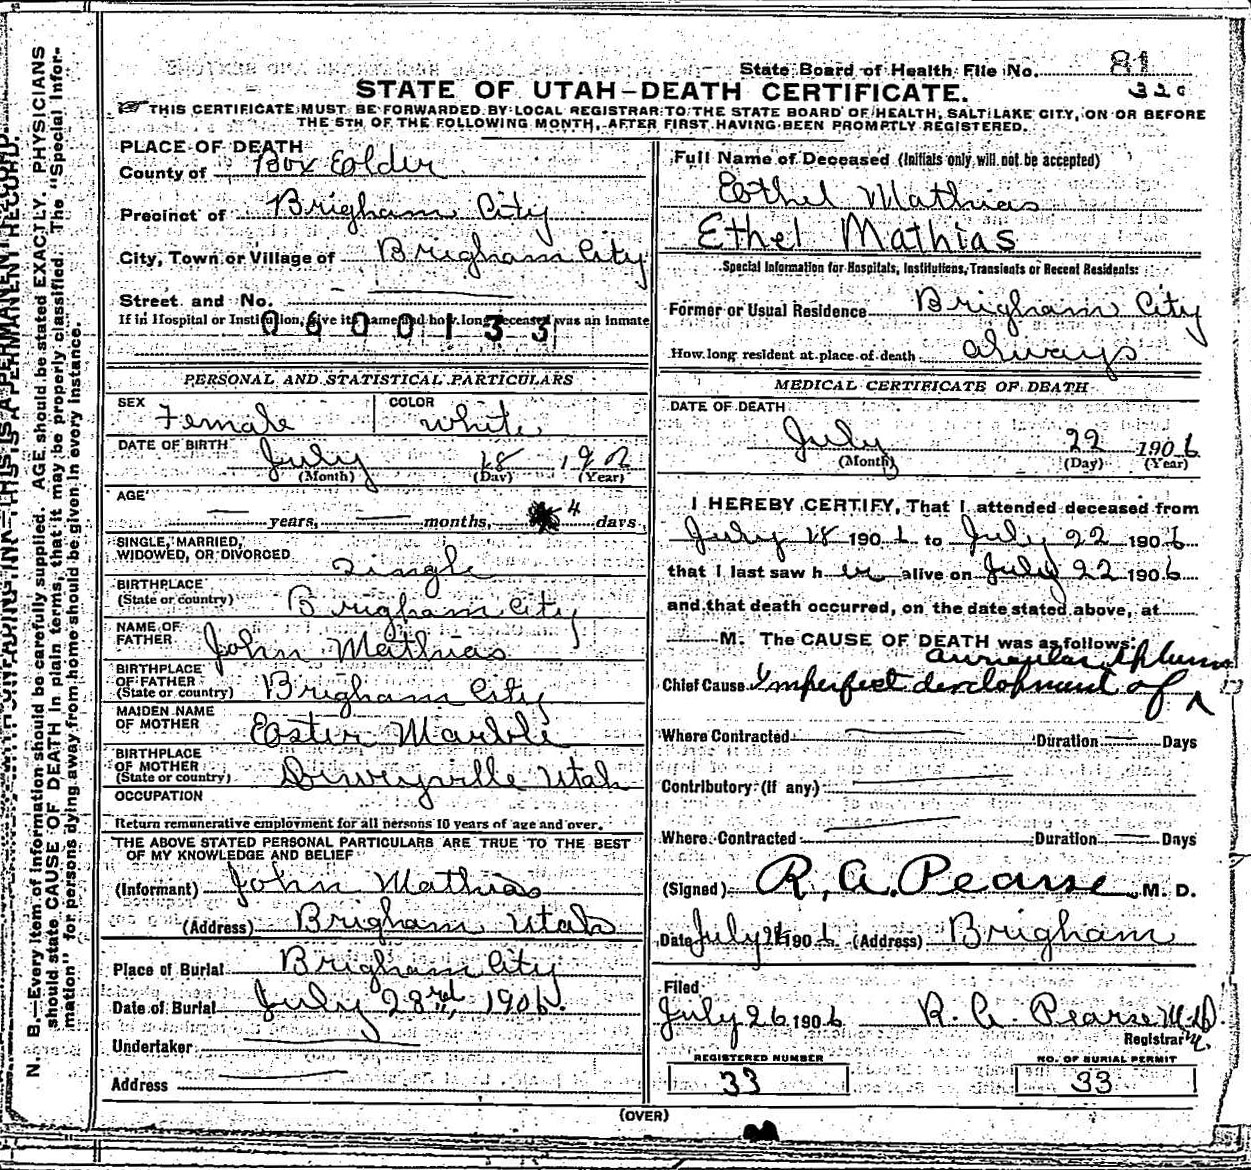 State Board of Health File No. 81
320
STATE OF UTAH—DEATH CERTIFICATE.
THIS CERTIFICATE MUST BE FORWARDED BY LOCAL REGISTRAR TO THE STATE BOARD OF HEALTH, SALT LAKE CITY, ON OR BEFORE
THE 5TH OF THE FOLLOWING MONTH, AFTER FIRST HAVING BEEN PROMPTLY REGISTERED.
PLACE OF DEATH
County of Box Elder
Precinct of Brigham City
City, Town or Village of Brigham City
Street and No.
If in Hospital or Institution, give its name and how long deceased was an inmate
0600133
PERSONAL AND STATISTICAL PARTICULARS
SEX Female COLOR White
DATE OF BIRTH July 18 1906
(Month) (Day) (Year)
AGE — years, — months, 4 days
SINGLE, MARRIED,
WIDOWED, OR DIVORCED Single
BIRTHPLACE
(State or country) Brigham City
NAME OF
FATHER John Mathias
BIRTHPLACE
OF FATHER
(State or country) Brigham City
MAIDEN NAME
OF MOTHER Easter Marble
BIRTHPLACE
OF MOTHER
(State or country) Deweyville Utah
OCCUPATION
Return remunerative employment for all persons 10 years of age and over.
THE ABOVE STATED PERSONAL PARTICULARS ARE TRUE TO THE BEST
OF MY KNOWLEDGE AND BELIEF
(Informant) John Mathias
(Address) Brigham Utah
Place of Burial Brigham City
Date of Burial July 23rd, 1906.
Undertaker
Address
Full Name of Deceased (Initials only will not be accepted)
Ethel Mathias
Ethel Mathias
Special Information for Hospitals, Institutions, Transients or Recent Residents:
Former or Usual Residence Brigham City
How long resident at place of death always
MEDICAL CERTIFICATE OF DEATH
DATE OF DEATH
July 22 1906
(Month) (Day) (Year)
I HEREBY CERTIFY, That I attended deceased from
July 18 1906 to July 22 1906
that I last saw her alive on July 22 1906
and that death occurred, on the date stated above, at
M. The CAUSE OF DEATH was as follows:
auricular
Chief Cause Imperfect development of
Where Contracted — Duration — Days
Contributory (if any)
Where Contracted — Duration — Days
(Signed) R. A. Pearse M. D.
Date July 1906 (Address) Brigham
Filed
July 26 1906 R. A. Pearse M.D.
Registrar
REGISTERED NUMBER NO. OF BURIAL PERMIT
33 33
(OVER)
THIS IS A PERMANENT RECORD.
N. B.—Every item of information should be carefully supplied. AGE should be stated EXACTLY. PHYSICIANS
should state CAUSE OF DEATH in plain terms, that it may be properly classified. The "Special Infor-
mation" for persons dying away from home should be given in every instance.